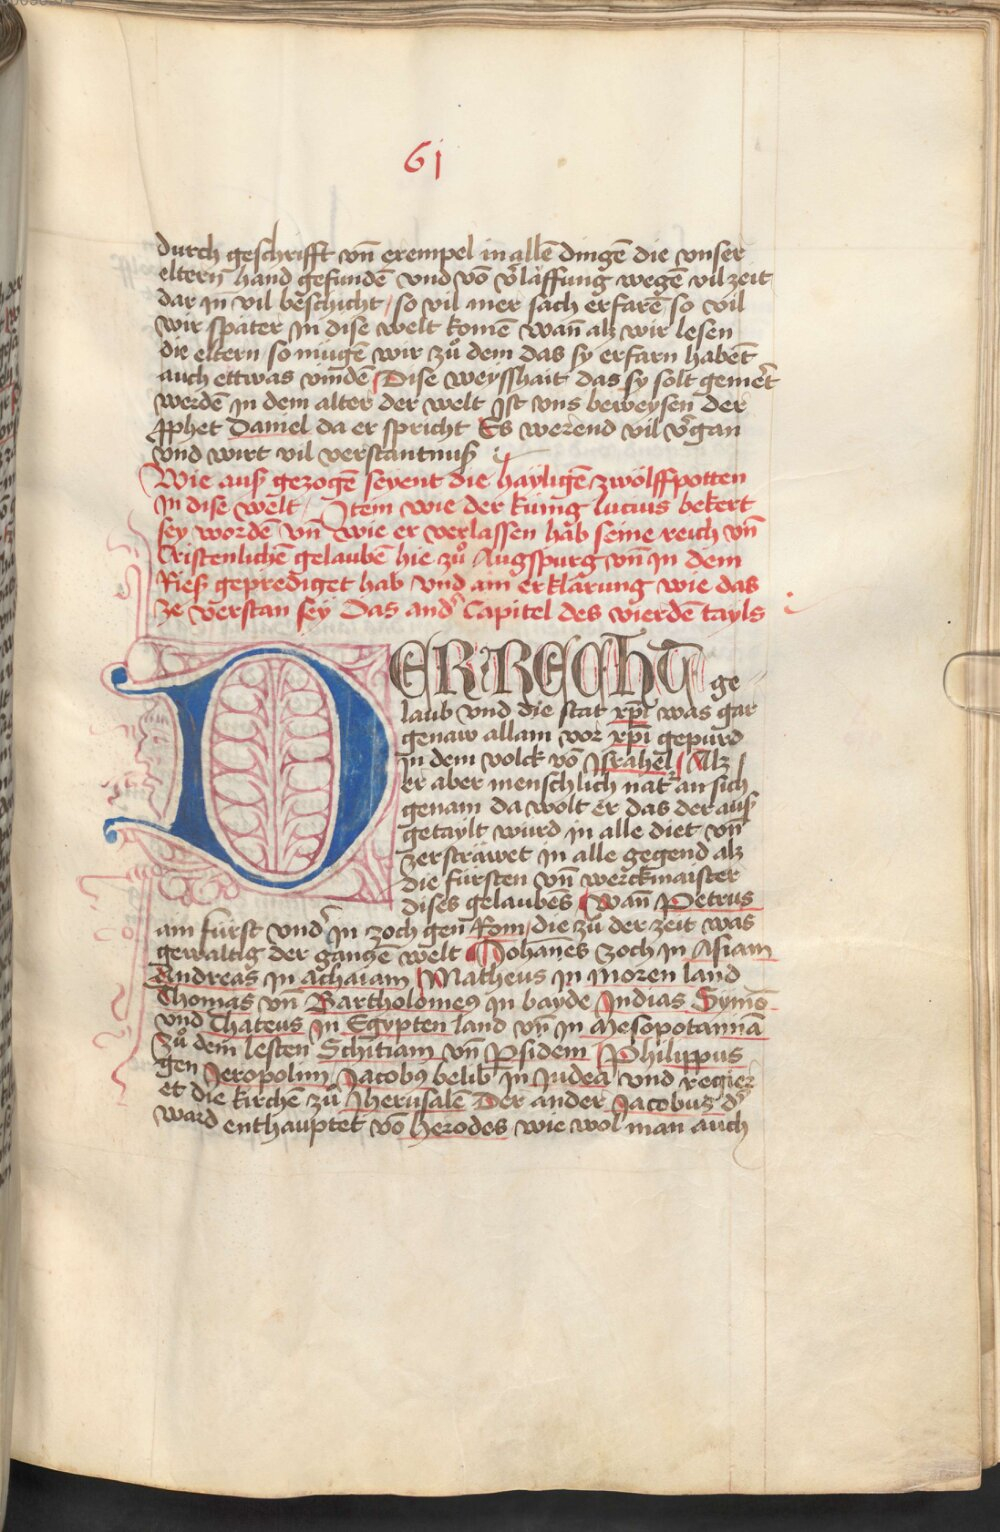 61
durch geschrifft vn̄ exempel in allē dingē die vnser
elterñ hand gefundē vnd vō v̾läffung wegē vil zeit
dar jn vil beschicht / so vil mer sach erfarē so vil
wir später in dise welt komē wañ alz wir lesen
die eltern so mügē wir zů dem das sy erfarn habēt
auch ettwas vindē Dise weysshait das sy solt gemer̄t
werdē in dem alter der welt jst vns beweysen der
ꝓphet Daniel da er spricht Es werend vil v̾gan
vnd wirt vil verstantnuß
Wie auß gezogē seyent die häyligē zwölffpotten
in dise welt / Jtem wie der küng lucius bekert
sey wordē vn̄ wie er verlassen hab seine reich vn̄
Cristenlichē gelaubē hie zů Augspurg vn̄ in dem
Rieß geprediget hab vnd ain erklärung wie das
ze verstan sey Das and̾ Capitel des vierdē tayls
DER RECHT ge
laub vnd die stat xp̄i was gar
genaw allain vor xp̄i gepurd
in dem volck vō Jsrahel / Alz
er aber menschlich nat̾ an sich
genam da wolt er das der auß
getaylt wurd in alle diet vn̄
zersträwet in alle gegend alz
die fürsten vn̄ werckmaister
dises gelaubēs Wañ Petrus
ain fürst vnd̾ jn zoch gen Rom / die zů der zeit was
gewaltig der gantzē welt Johānes zoch in Asiam
Andreas in Achaiam Matheus in moren land
Thomas vn̄ Bartholomeꝰ in bayde Jndias Symō
vnd Thateus jn Egypten land vn̄ in Mesopotaniā
zů dem lesten Schitiam vn̄ Psidem Philippus
gen Jeropolim Jacobꝰ belib in Judea vnd regier
et die kirchē zů Jherusalē Der ander Jacobus d̾
ward enthauptet vō herodes wie wol man auch